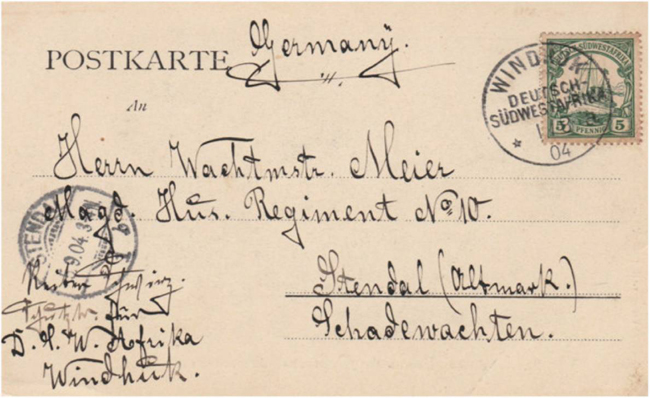 Germany.
POSTKARTE
An
Herrn Wachtmstr. Meier
Magd. Hus. Regiment No 10.
Stendal (Altmark.)
Schadewachten.
Reiter
Schutztr. für
D. S. W. Afrika
Windhuk.
WINDHUK
DEUTSCH-
SÜDWESTAFRIKA
04
SÜDWESTAFRIKA
5 PFENNIG 5
STENDAL
9.04.3